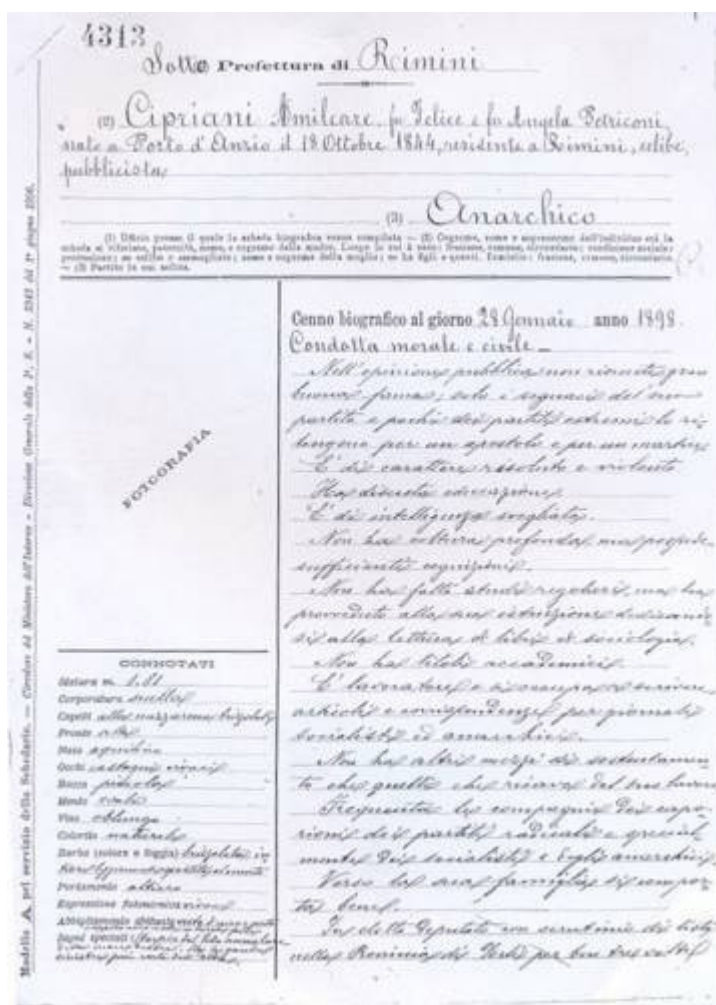 4313
Sotto Prefettura di Rimini
(2) Cipriani Amilcare fu Felice e fu Angela Petriconi,
nato a Porto d'Anzio il 18 Ottobre 1844, residente a Rimini, celibe,
pubblicista
(3) Anarchico
(1) Ufficio presso il quale la scheda biografica venne compilata — (2) Cognome, nome e soprannome dell'individuo cui la
scheda si riferisce, paternità, nome, e cognome della madre. Luogo in cui è nato: frazione, comune, circondario; condizione sociale;
professione; se celibe o ammogliato; nome e cognome della moglie; se ha figli e quanti. Domicilio: frazione, comune, circondario.
— (3) Partito in cui milita.
Modello A, pel servizio dello Schedario. — Circolare del Ministero dell'Interno - Divisione Generale della P. S. - N. 5343 del 1° giugno 1896.
FOTOGRAFIA
CONNOTATI
Statura m. 1.81
Corporatura snella
Capelli
Fronte alta
Naso aquilino
Occhi castagni vivaci
Bocca piccola
Mento ovale
Viso oblungo
Colorito naturale
Barba (colore e foggia) brizzolata
Portamento altiero
Espressione fisionomica vivace
Abbigliamento abituale
Segni speciali
Cenno biografico al giorno 28 Gennaio anno 1898.
Condotta morale e civile –
Nell'opinione pubblica non riscuote gran
buona fama; solo i seguaci del suo
partito e pochi dei partiti estremi lo ri-
tengono per un apostolo e per un martire
E' di carattere risoluto e violento
Ha discreta educazione
E' di intelligenza svegliata.
Non ha coltura profonda ma possiede
sufficienti cognizioni.
Non ha fatto studi regolari, ma ha
provveduto alla sua istruzione dedicando
si alla lettura di libri di sociologia.
Non ha titoli accademici.
E' lavoratore e si occupa a scrivere
articoli e corrispondenze per giornali
socialisti ed anarchici.
Non ha altri mezzi di sostentamen-
to che quello che ricava dal suo lavoro
Frequenta la compagnia dei capo-
rioni dei partiti radicali e special
mente dei socialisti e degli anarchici
Verso la sua famiglia si compor-
ta bene.
Fu eletto Deputato con scrutinio di lista
nella Provincia di Forlì per ben tre volte